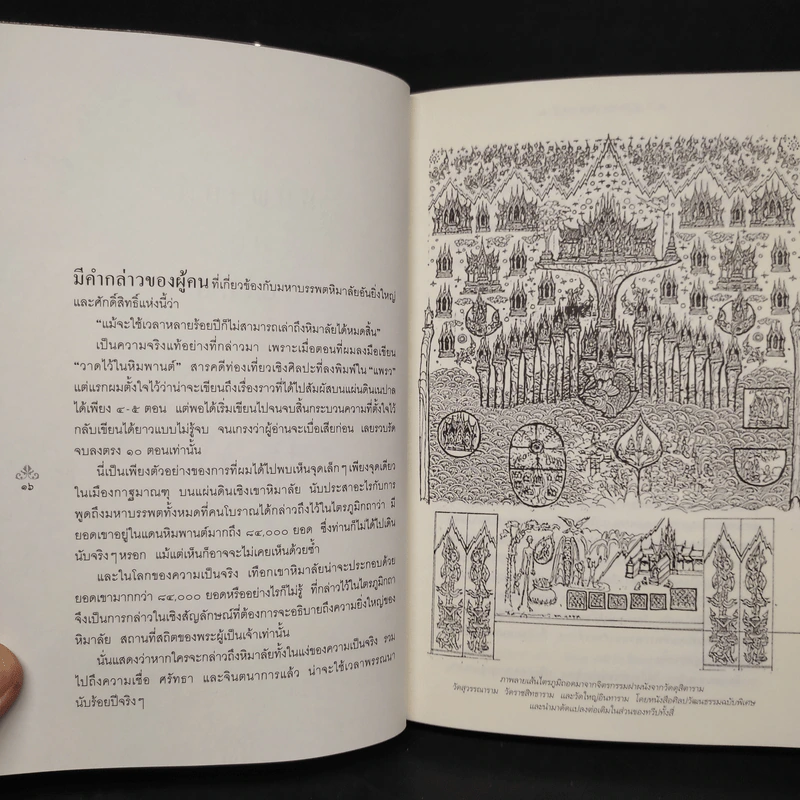 มีคำกล่าวของผู้คน ที่เกี่ยวข้องกับมหาบรรพตหิมาลัยอันยิ่งใหญ่
และศักดิ์สิทธิ์แห่งนี้ว่า
“แม้จะใช้เวลาหลายร้อยปีก็ไม่สามารถเล่าถึงหิมาลัยได้หมดสิ้น”
เป็นความจริงแท้อย่างที่กล่าวมา เพราะเมื่อตอนที่ผมลงมือเขียน
“วาดไว้ในหิมพานต์” สารคดีท่องเที่ยวเชิงศิลปะที่ลงพิมพ์ใน “แพรว”
แต่แรกผมตั้งใจไว้ว่าน่าจะเขียนถึงเรื่องราวที่ได้ไปสัมผัสบนแผ่นดินเนปาล
ได้เพียง ๔-๕ ตอน แต่พอได้เริ่มเขียนไปจนจบสิ้นกระบวนความที่ตั้งใจไว้
กลับเขียนได้ยาวแบบไม่รู้จบ จนเกรงว่าผู้อ่านจะเบื่อเสียก่อน เลยรวบรัด
จบลงตรง ๑๐ ตอนเท่านั้น
นี่เป็นเพียงตัวอย่างของการที่ผมได้ไปพบเห็นจุดเล็กๆ เพียงจุดเดียว
ในเมืองกาฐมาณฑุ บนแผ่นดินเชิงเขาหิมาลัย นับประสาอะไรกับการ
พูดถึงมหาบรรพตทั้งหมดที่คนโบราณได้กล่าวถึงไว้ในไตรภูมิกถาว่า มี
ยอดเขาอยู่ในแดนหิมพานต์มากถึง ๘๔,๐๐๐ ยอด ซึ่งท่านก็ไม่ได้ไปเดิน
นับจริงๆ หรอก แม้แต่เห็นก็อาจจะไม่เคยเห็นด้วยซ้ำ
และในโลกของความเป็นจริง เทือกเขาหิมาลัยน่าจะประกอบด้วย
ยอดเขามากกว่า ๘๔,๐๐๐ ยอดหรืออย่างไรก็ไม่รู้ ที่กล่าวไว้ในไตรภูมิกถา
จึงเป็นการกล่าวในเชิงสัญลักษณ์ที่ต้องการจะอธิบายถึงความยิ่งใหญ่ของ
หิมาลัย สถานที่สถิตของพระผู้เป็นเจ้าเท่านั้น
นั่นแสดงว่าหากใครจะกล่าวถึงหิมาลัยทั้งในแง่ของความเป็นจริง รวม
ไปถึงความเชื่อ ศรัทธา และจินตนาการแล้ว น่าจะใช้เวลาพรรณนา
นับร้อยปีจริงๆ
๑๖
ภาพลายเส้นไตรภูมิถอดมาจากจิตรกรรมฝาผนังจากวัดดุสิดาราม
วัดสุวรรณาราม วัดราชสิทธาราม และวัดใหญ่อินทาราม โดยหนังสือศิลปวัฒนธรรมฉบับพิเศษ
และนำมาดัดแปลงต่อเติมในส่วนของทวีปทั้งสี่